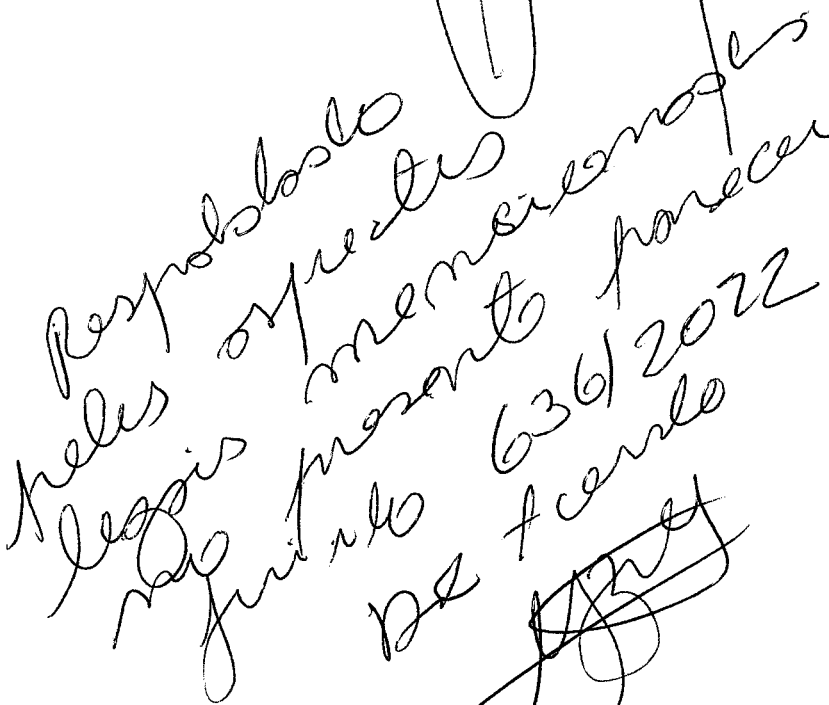 Respaldado
pelos aspectos
legais mencionados
no presente parecer
jurídico 636/2022
De Acordo